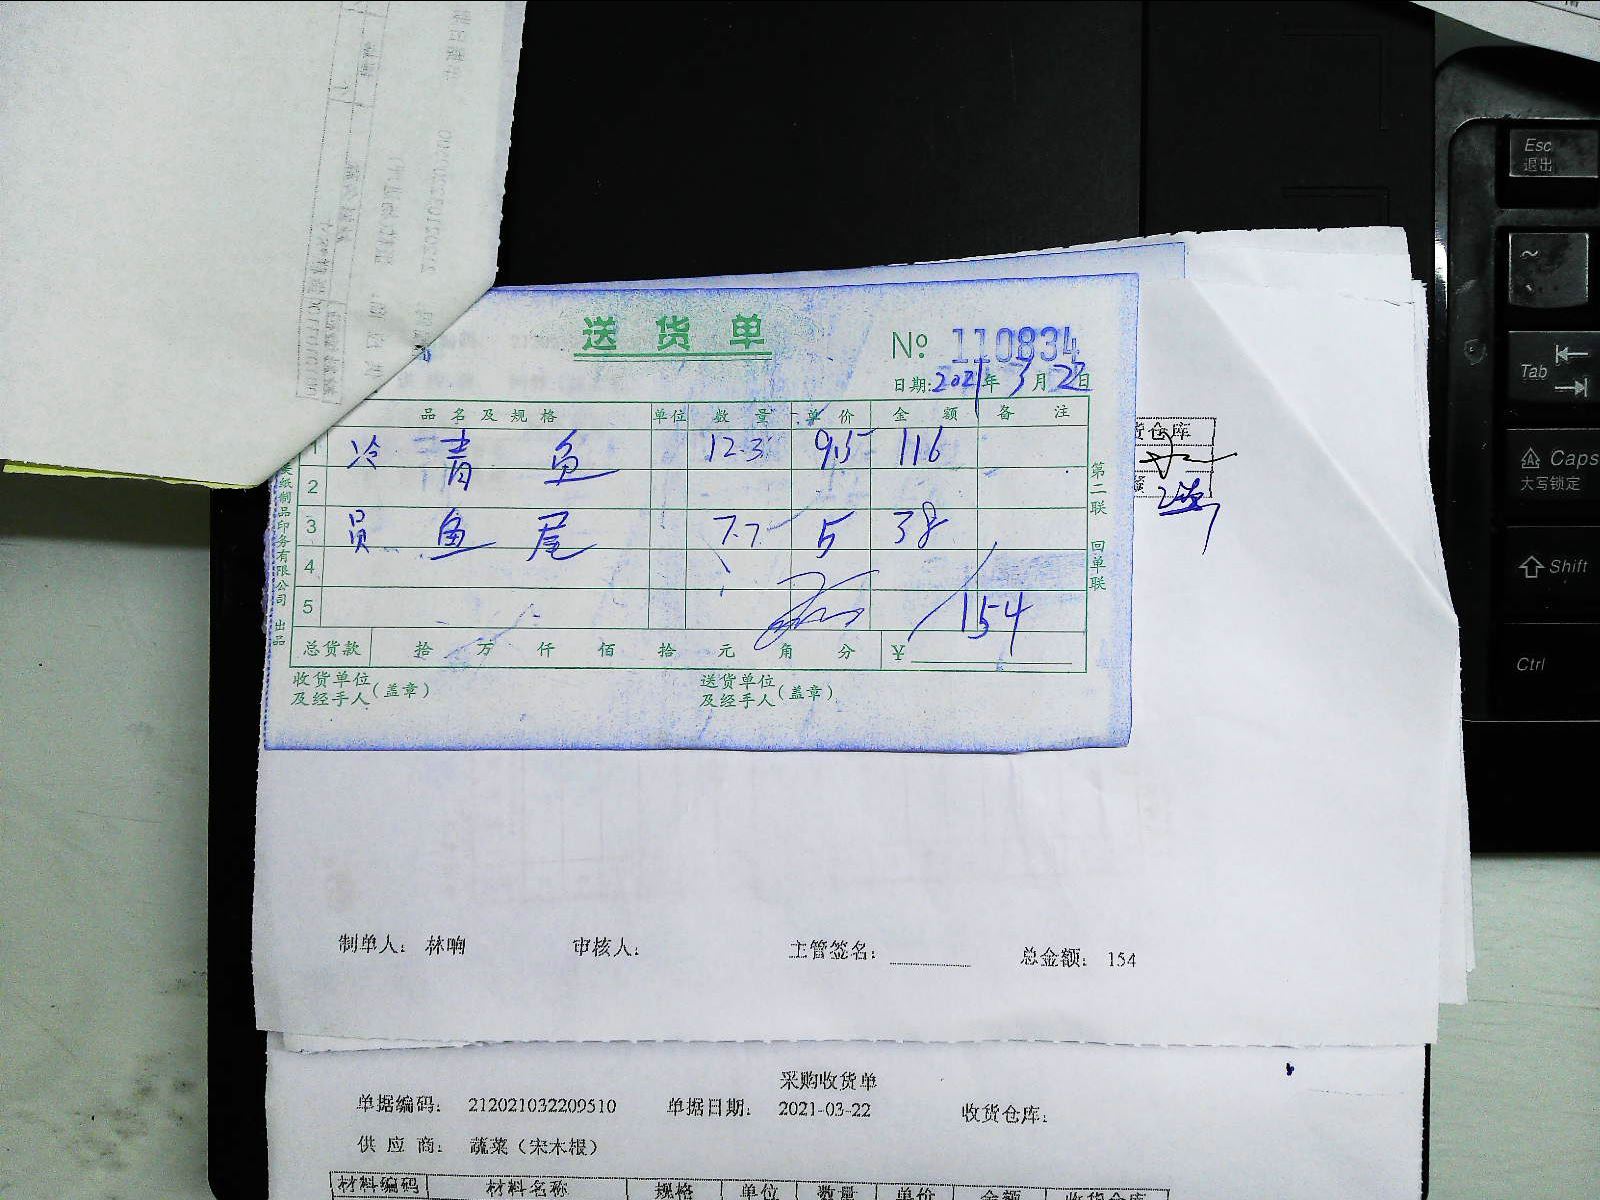 送货单
№ 110834
日期:2021年3月22日
品名及规格 单位 数量 单价 金额 备注
1 冷 青 鱼 12.3 9.5 116
2
3 员 鱼 尾 7.7 5 38
4
5 154
总货款 拾 万 仟 佰 拾 元 角 分 ¥
收货单位及经手人(盖章)
送货单位及经手人(盖章)
第二联 回单联
纸制品印务有限公司 出品
货仓库
制单人: 林响 审核人: 主管签名: 总金额: 154
采购收货单
单据编码: 212021032209510 单据日期: 2021-03-22 收货仓库:
供应商: 蔬菜(宋木根)
材料编码 材料名称 规格 单位 数量 单价 金额 收货仓库
Esc
退出
~
Tab
Caps
大写锁定
Shift
Ctrl